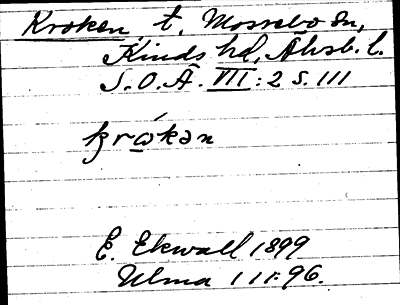 Kroken, t. Mossebo sn,
Kinds hd, Älvsb. l.
S.O.Ä. VII:2 S. 111
krɷ́kən
E. Ekwall 1899
Ulma 111:96.